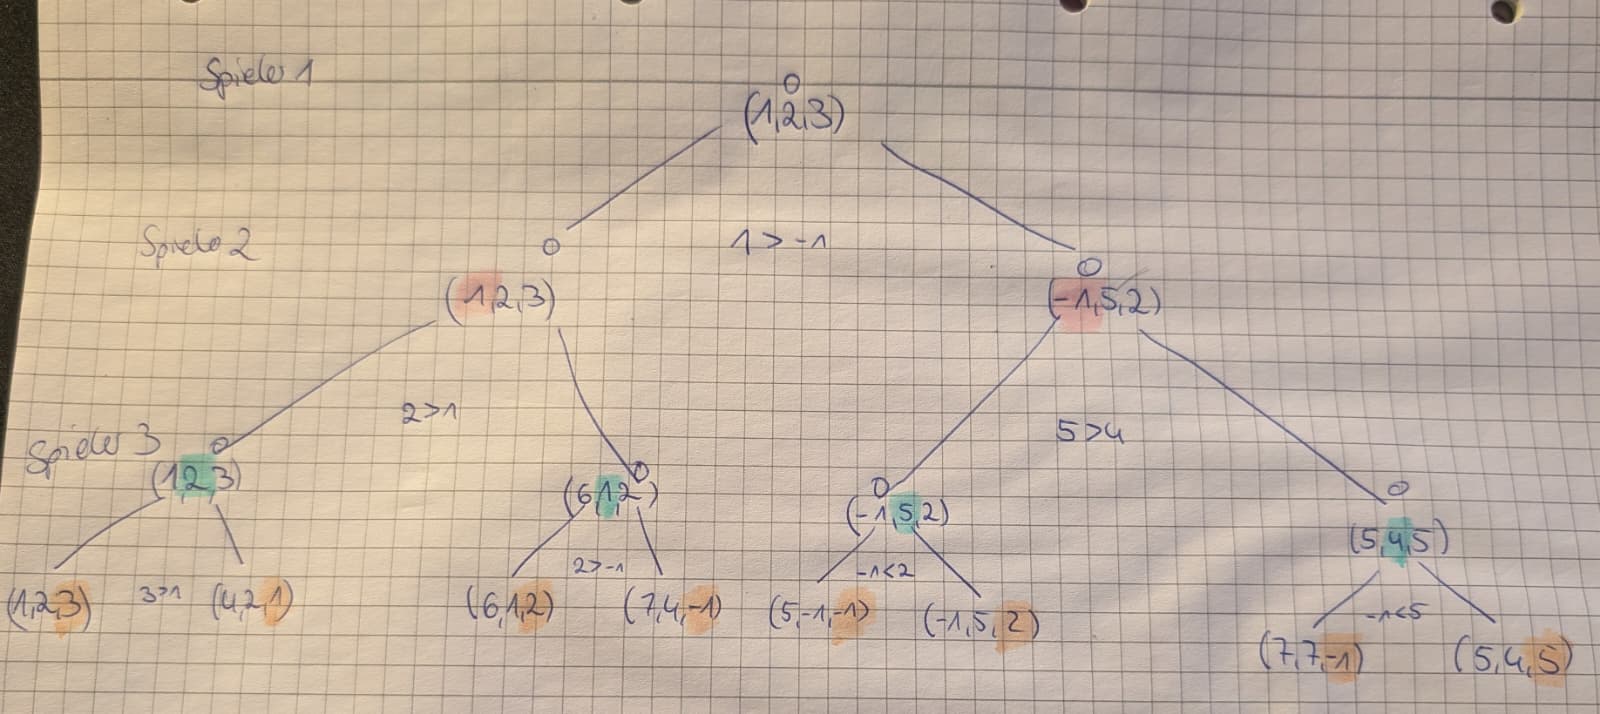 Spieler 1
(1,2,3)
Spieler 2
1 > -1
(1,2,3)
(-1,5,2)
2>1
5>4
Spieler 3
(1,2,3)
(6,1,2)
(-1,5,2)
(5,4,5)
3>1
2>-1
-1<2
-1<5
(1,2,3)
(4,2,1)
(6,1,2)
(7,4,-1)
(5,-1,-1)
(-1,5,2)
(7,7,-1)
(5,4,5)